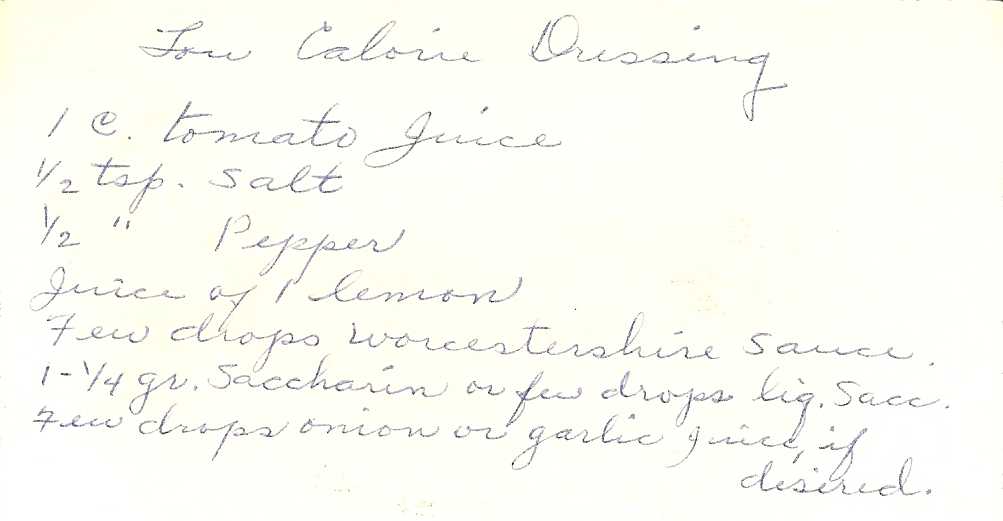 Low Calorie Dressing
1 C. tomato Juice
1/2 tsp. Salt
1/2 " Pepper
Juice of 1 lemon
Few drops Worcestershire Sauce.
1-1/4 gr. Saccharin or few drops liq. Sacc.
Few drops onion or garlic juice, if
desired.